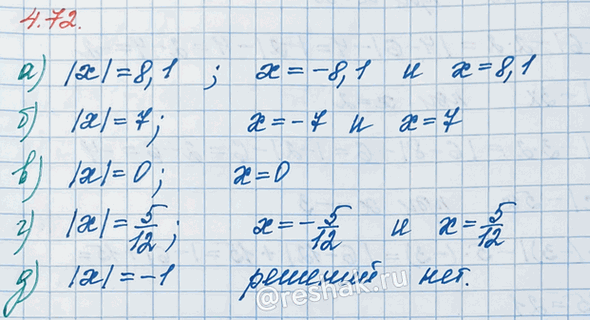 4.72.
а) |x| = 8,1 ; x = -8,1 и x = 8,1
б) |x| = 7; x = -7 и x = 7
в) |x| = 0; x = 0
г) |x| = 5/12; x = -5/12 и x = 5/12
д) |x| = -1 решений нет.
@reshak.ru